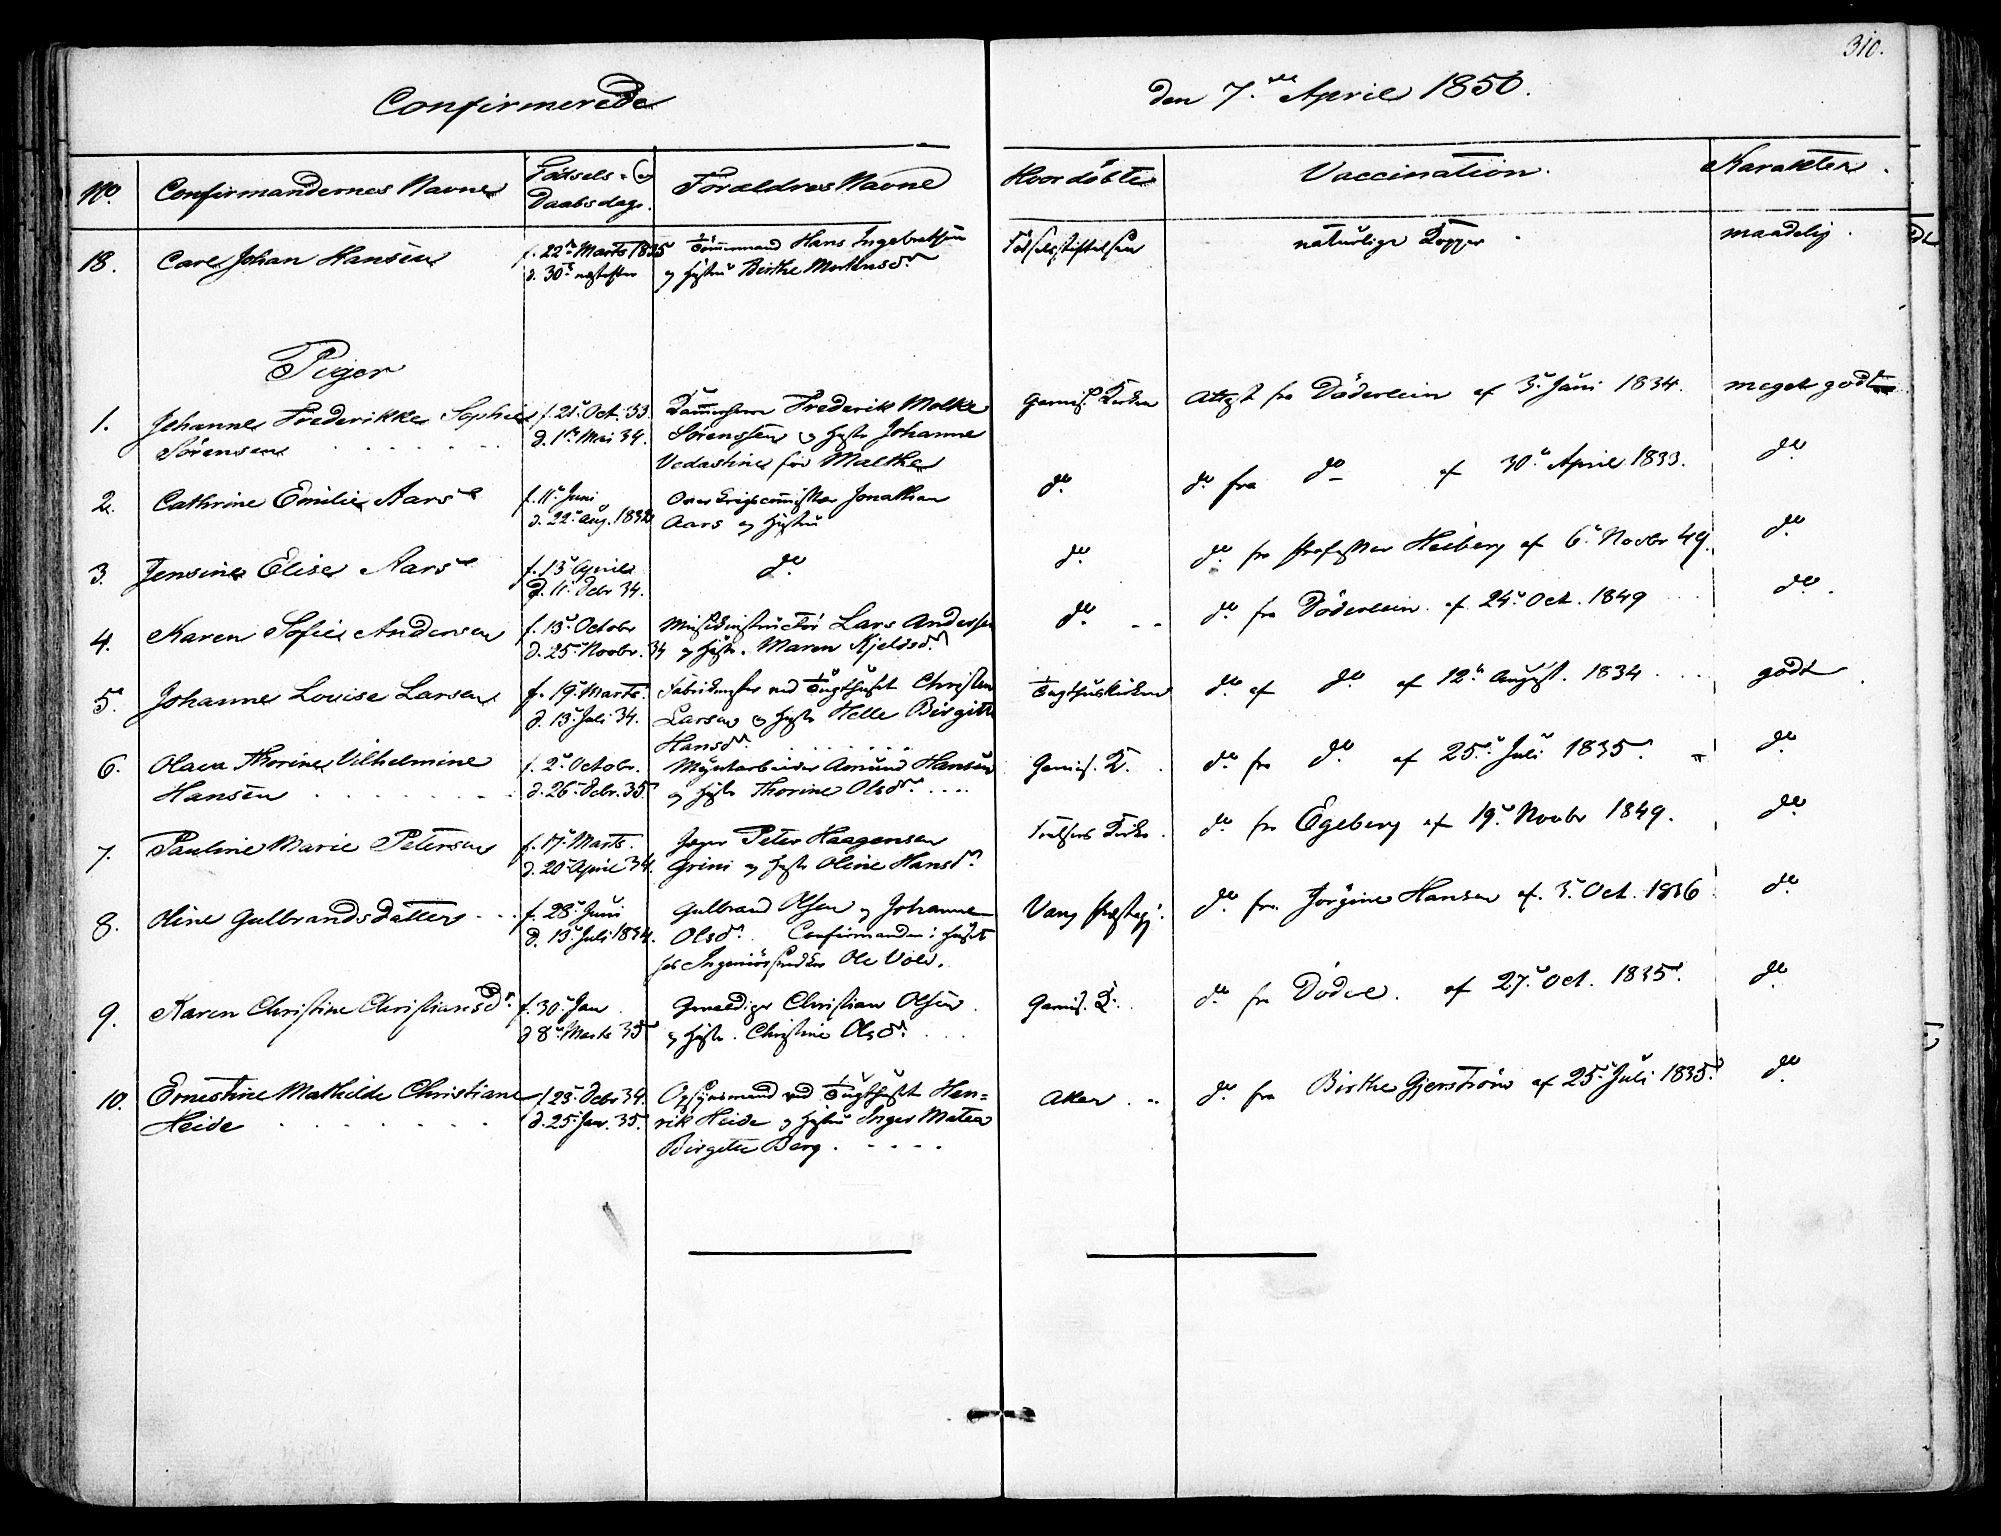 310.
Confirmerede den 7de April 1850.
No. Confirmandernes Navne Fødsels- og Daabsdag. Forældres Navne Hvor døbte Vaccination. Karakter.
18. Carl Johan Hansen f. 22de Marts 1835 Tømmermand Hans Ingebretsen Fødselsstiftelsen naturlige Kopper maadelig.
d. 30te næstefter og Hustru Birthe Mortensdr.
Piger
1. Johanne Frederikke Sophie f. 21. Oct. 33. Frederik Molke Garnis. Kirken Attest fra Döderlein af 3. Juni 1834. meget godt
Sørensen d. 1ste Mai 34. Sørenssen og Hustr. Johanne
Vedastine før Malthe
2. Cathrine Emilie Aars f. 11. Juni Over Krigscommissær Jonathan do. do. fra do af 30. April 1833. do
d. 22. Aug. 1832 Aars og Hustru
3. Jensine Elise Aars f. 13. April do. do. do. fra Professor Heiberg af 6. Novbr 49. do
d. 11. Debr 34.
4. Karen Sofie Andersen f. 13. Octobr Lars Anderssen do. do. fra Döderlein af 24. Oct. 1849 do.
d. 25. Novbr. 34 og Hustr. Maren Kjeldsdr.
5. Johanne Louise Larsen f. 19. Marts. ved Tugthuset Christen Tugthuskirken do. af do. af 12te August. 1834 godt
d. 13. Juli 34. Larsen og Hustr Helle Birgitte
Hansdr.
6. Olava Thorine Vilhelmine f. 2. Octobr. Myntarbeider Amund Hansen Garnis. K. do. fra do. af 25. Juli 1835. do.
Hansen d. 26. Debr. 35. og Hustr Thorine Olsdr.
7. Pauline Marie Petersen f. 17. Marts. Jæger Peter Haagensen Frelsers Kirke. do. fra Egeberg af 19. Novbr 1849. do
d. 20. April 34. Grini og Hustr Oline Hansdr.
8. Oline Gulbrandsdatter f. 28. Juni Gulbrand Olsen og Johanne Vang Præstegj. do. fra Jörgine Hansen af. 3. Oct. 1836. do.
d. 13. Juli 1834. Olsdr. Confirmanden i Huset
hos Ole Vold.
9. Karen Christine Christiansdr. f. 30. Jan Christian Olsen Garnis. K. do. fra Döderl. af 27. Oct. 1835. do
d 8. Marts 35 og Hustr. Christine Olsdr.
10. Ernestine Mathilde Christiane f 23. Debr 34. Opsynsmand ved Tugthuset Hen= Aker. do. fra Birthe Gjerström af 25. Juli 1835. do
Heide d. 25. Jan. 35. rik Heide og Hustru Inger Matea
Birgitte Berg.